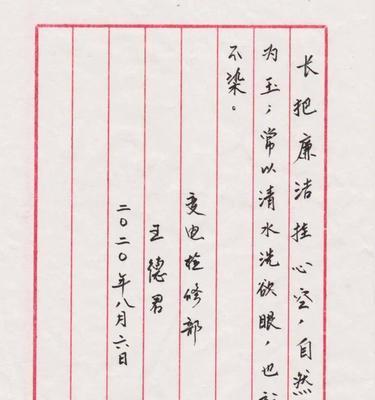 长把廉洁挂心空，自然
为玉；常以清水洗欲眼，也
不染。
变电检修部
王德君
二〇二〇年八月六日